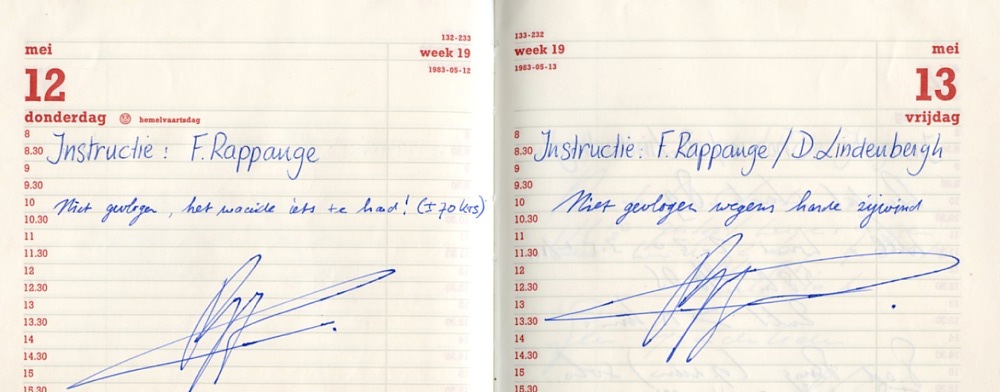 132-233
mei
week 19
1983-05-12
12
donderdag hemelvaartsdag
8
Instructie: F. Rappange
8.30
9
9.30
Niet gevlogen, het waaide iets te hard! (± 70 kts)
10
10.30
11
11.30
12
12.30
13
13.30
14
14.30
15
15.30
133-232
week 19
mei
1983-05-13
13
vrijdag
8
Instructie: F. Rappange / D. Lindenbergh
8.30
9
9.30
Niet gevlogen wegens harde zijwind
10
10.30
11
11.30
12
12.30
13
13.30
14
14.30
15
15.30